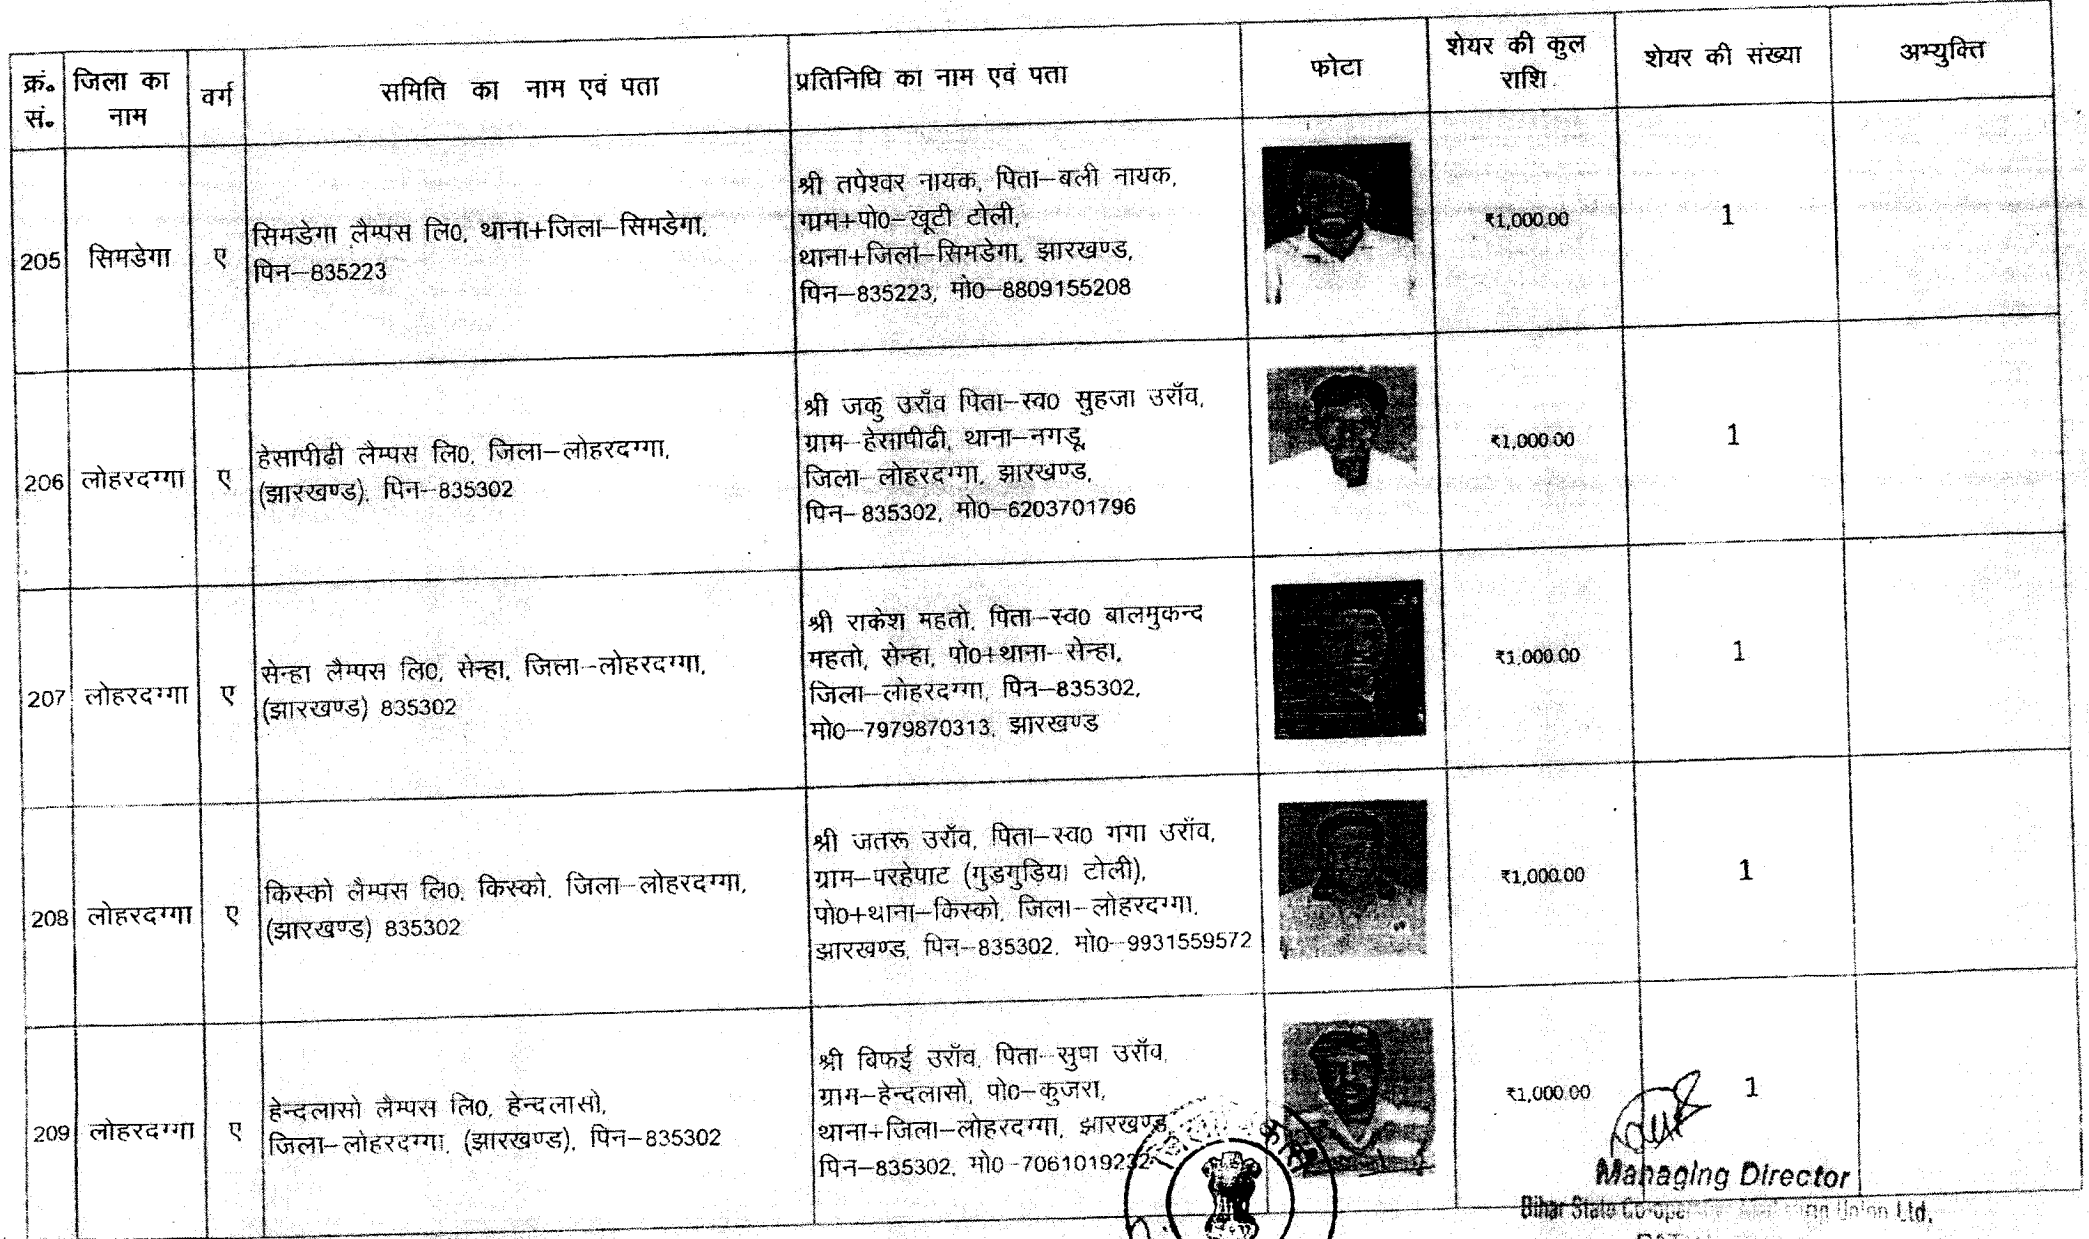 क्रं॰ सं॰
जिला का नाम
वर्ग
समिति का नाम एवं पता
प्रतिनिधि का नाम एवं पता
फोटा
शेयर की कुल राशि
शेयर की संख्या
अभ्युक्ति
205
सिमडेगा
ए
सिमडेगा लैम्पस लि0, थाना+जिला–सिमडेगा,
पिन–835223
श्री तपेश्वर नायक, पिता–बली नायक,
ग्राम+पो0–खूटी टोली,
थाना+जिला–सिमडेगा, झारखण्ड,
पिन–835223, मो0–8809155208
₹1,000.00
1
206
लोहरदग्गा
ए
हेसापीढी लैम्पस लि0, जिला–लोहरदग्गा,
(झारखण्ड), पिन–835302
श्री जकु उराँव पिता–स्व0 सुहजा उराँव,
ग्राम–हेसापीढी, थाना–नगडू,
जिला–लोहरदग्गा, झारखण्ड,
पिन–835302, मो0–6203701796
₹1,000.00
1
207
लोहरदग्गा
ए
सेन्हा लैम्पस लि0, सेन्हा, जिला–लोहरदग्गा,
(झारखण्ड) 835302
श्री राकेश महतो, पिता–स्व0 बालमुकन्द
महतो, सेन्हा, पो0+थाना–सेन्हा,
जिला–लोहरदग्गा, पिन–835302,
मो0–7979870313, झारखण्ड
₹1,000.00
1
208
लोहरदग्गा
ए
किस्को लैम्पस लि0, किस्को, जिला–लोहरदग्गा,
(झारखण्ड) 835302
श्री जतरू उराँव, पिता–स्व0 गंगा उराँव,
ग्राम–परहेपाट (गुडगुड़िया टोली),
पो0+थाना–किस्को, जिला–लोहरदग्गा,
झारखण्ड, पिन–835302, मो0–9931559572
₹1,000.00
1
209
लोहरदग्गा
ए
हेन्दलासो लैम्पस लि0, हेन्दलासो,
जिला–लोहरदग्गा, (झारखण्ड), पिन–835302
श्री बिफई उराँव, पिता–सुपा उराँव,
ग्राम–हेन्दलासो, पो0–कुजरा,
थाना+जिला–लोहरदग्गा, झारखण्ड,
पिन–835302, मो0–7061019232
₹1,000.00
1
Managing Director
Bihar State Co-operative Union Ltd.